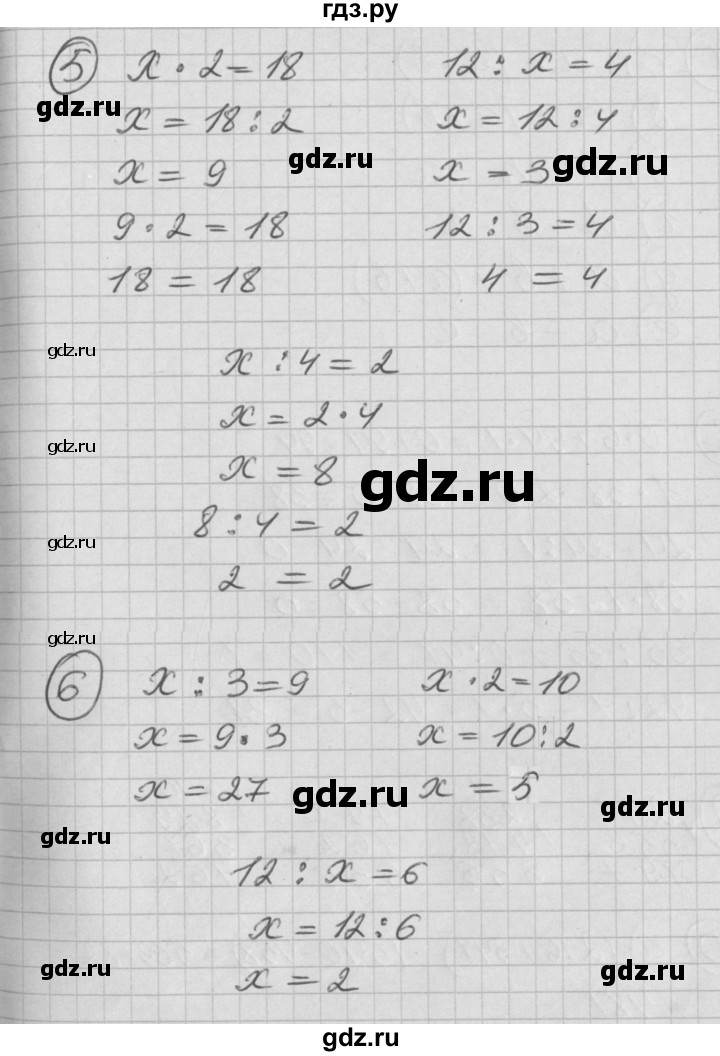 гдз.ру
5 x · 2 = 18
12 : x = 4
gdz.ru
x = 18 : 2
x = 12 : 4
x = 9
gdz.ru
x = 3
gdz.ru
9 · 2 = 18
12 : 3 = 4
18 = 18
4 = 4
gdz.ru
x : 4 = 2
x = 2 · 4
gdz.ru
x = 8
gdz.ru
8 : 4 = 2
gdz.ru
2 = 2
gdz.ru
6 x : 3 = 9
x · 2 = 10
x = 9 · 3
x = 10 : 2
x = 27
gdz.ru
x = 5
gdz.ru
gdz.ru
12 : x = 6
x = 12 : 6
gdz.ru
x = 2
gdz.ru
gdz.ru